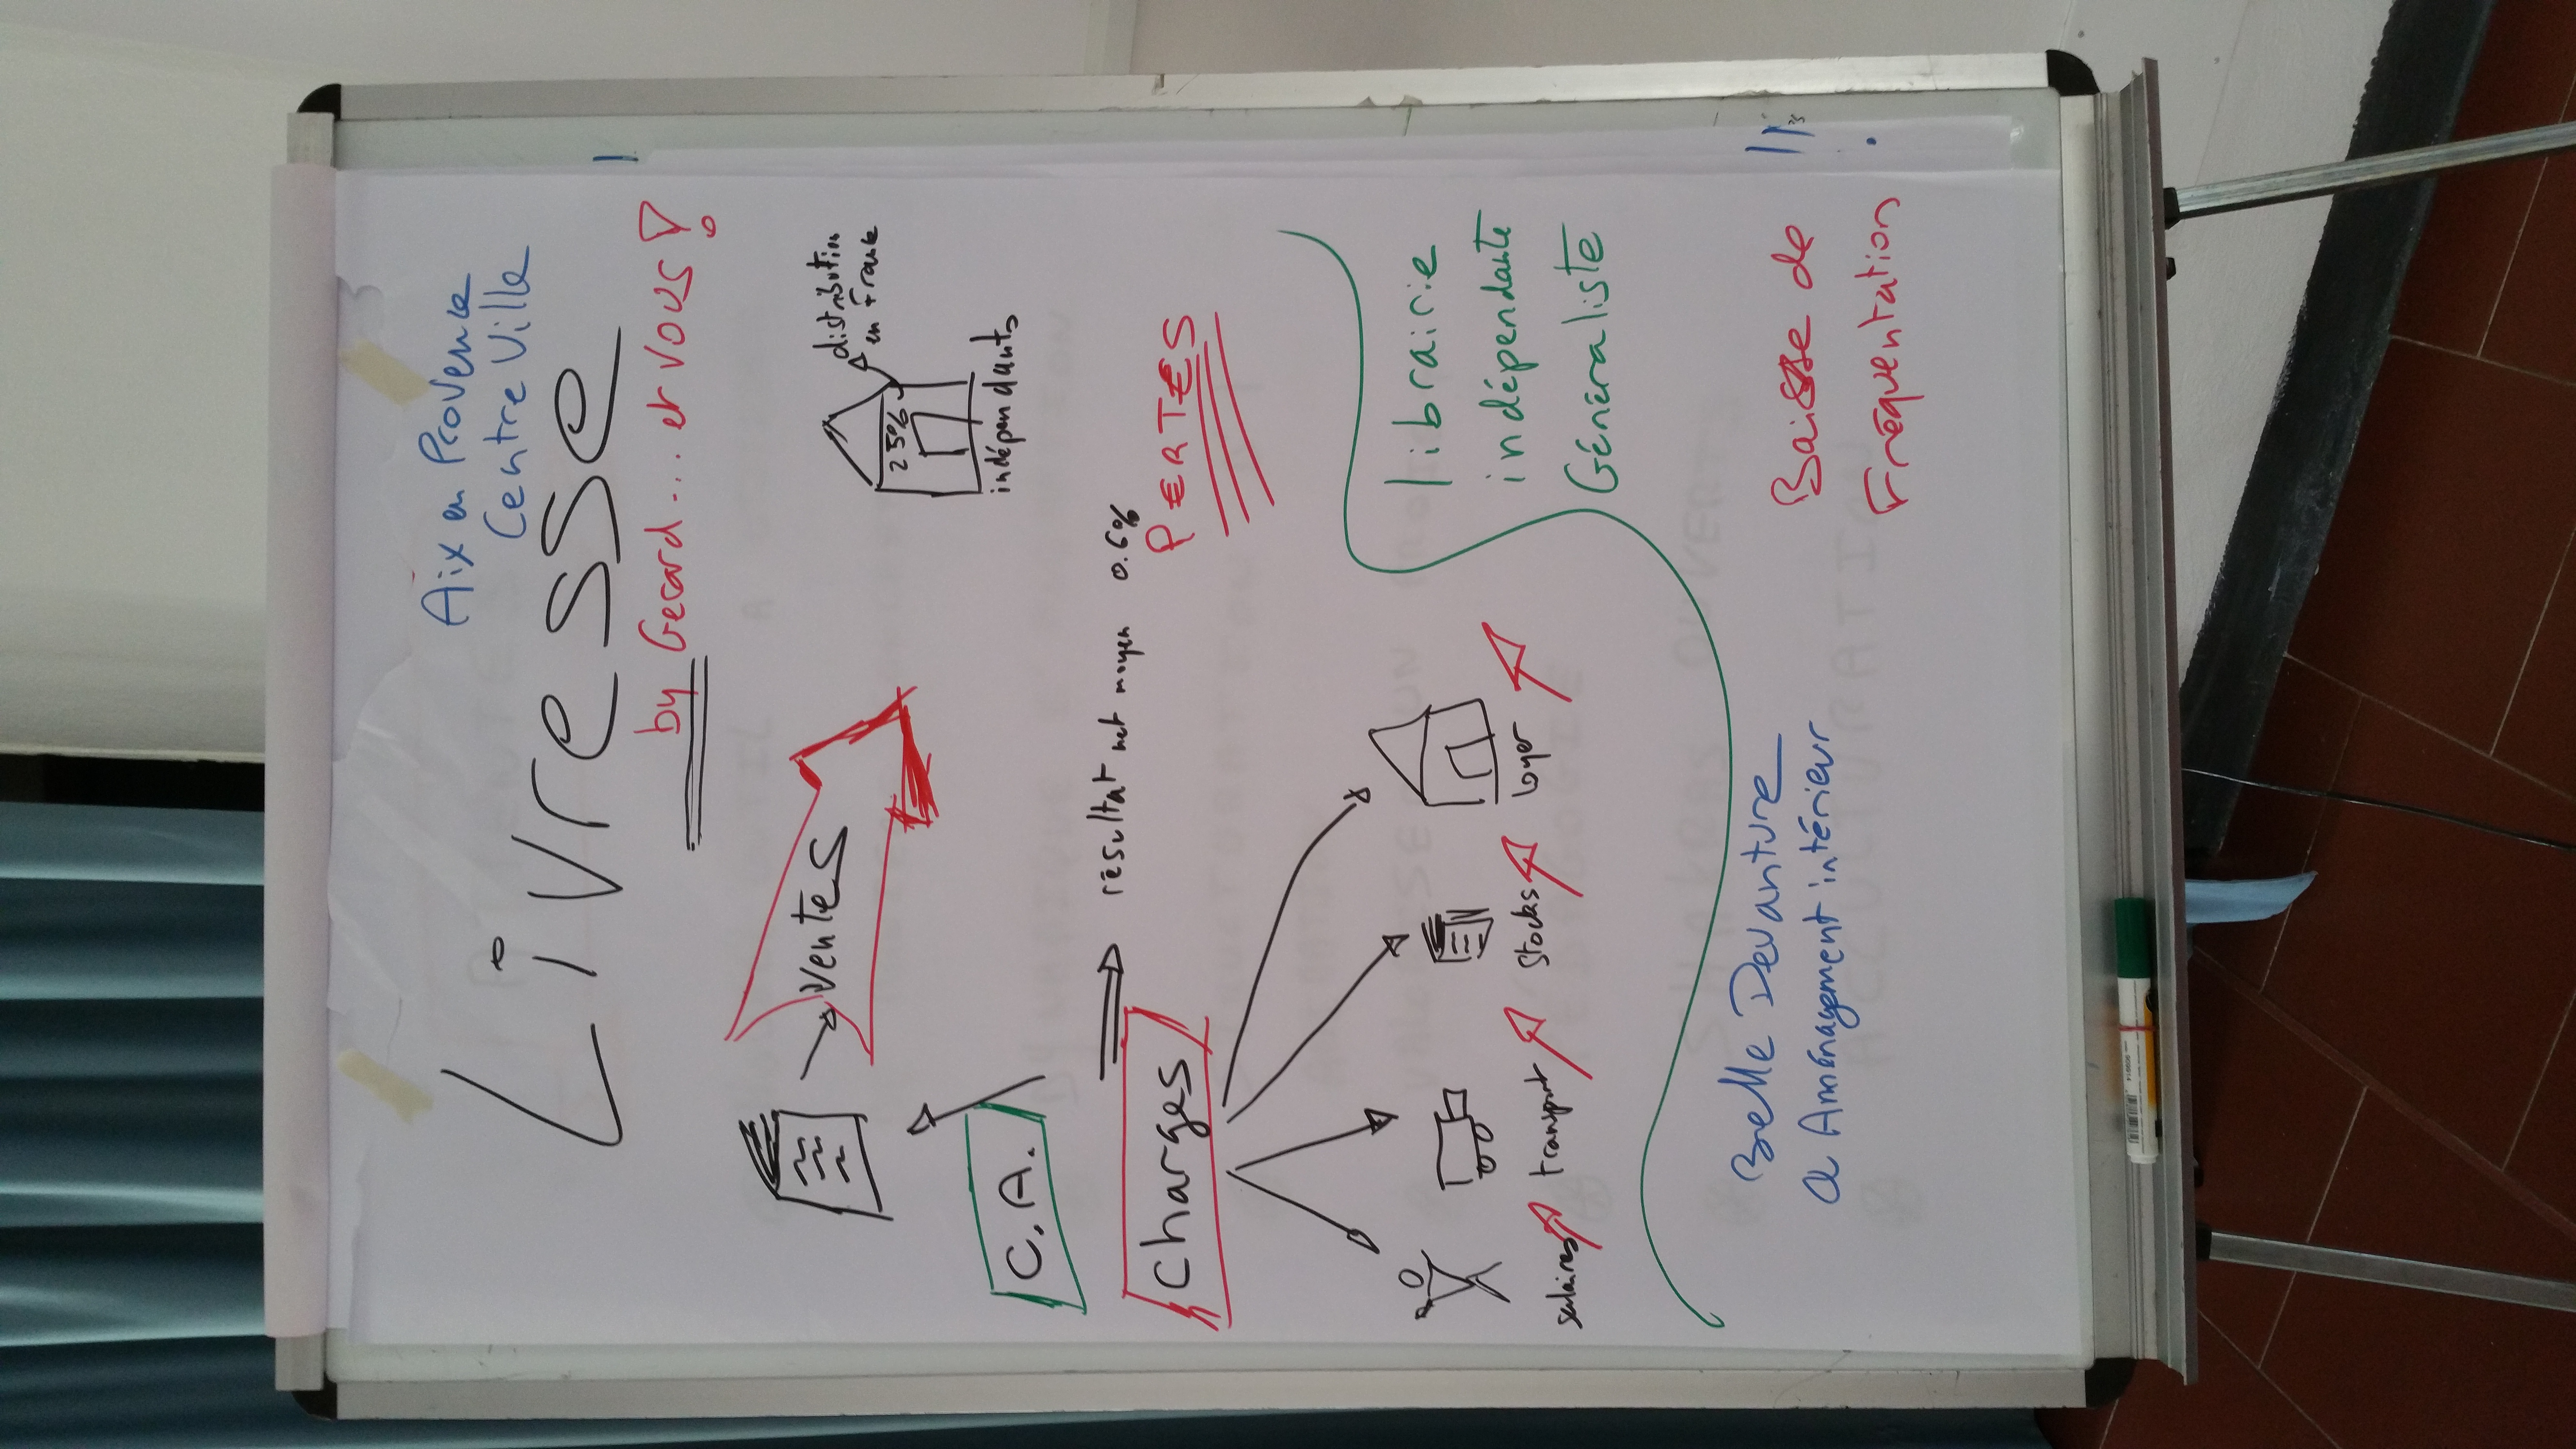 Aix en Provence
Centre Ville
Livresse
by Gerard... et vous !
ventes
distribution
en France
25%
indépendants
C.A.
résultat net moyen 0.6%
PERTES
Charges
salaires
transport
stocks
loyer
librairie
indépendante
Généraliste
Belle Devanture
& Aménagement intérieur
Baisse de
Fréquentation